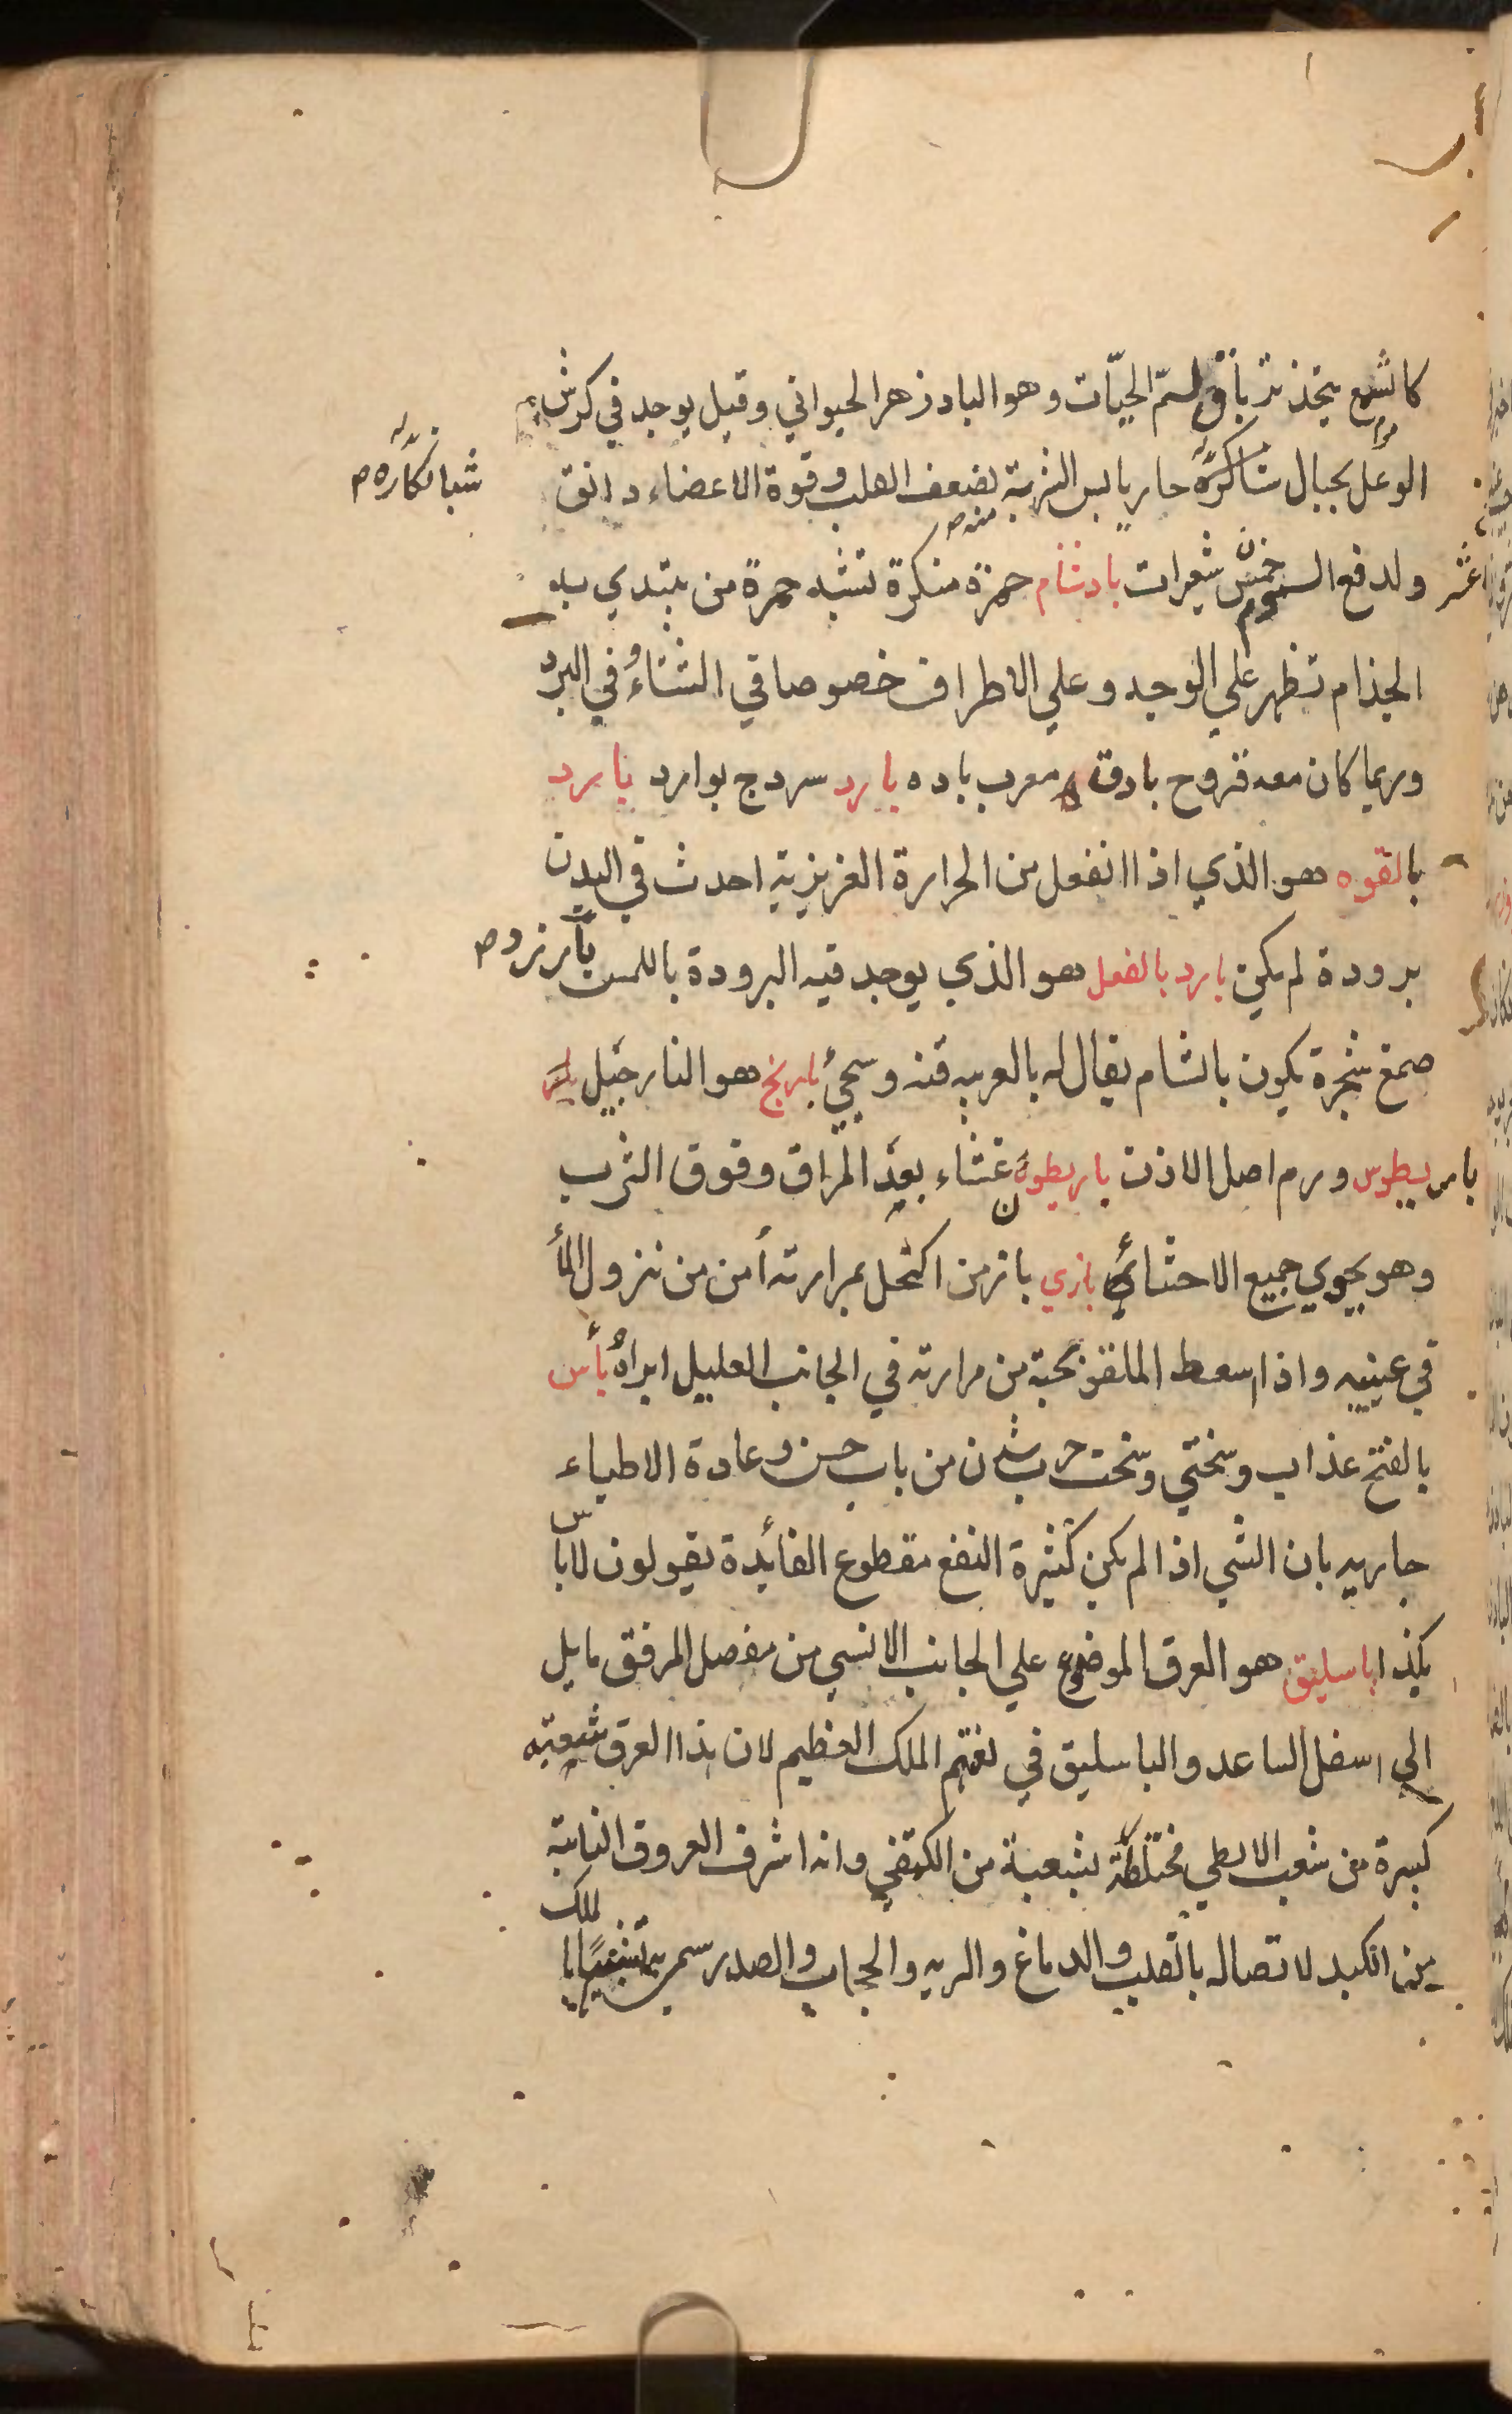 كالشمع يتخذ ترياق لسم الحيّات وهو البادزهر الحيواني وقيل يوجد في كرش
الوعل بجبال شبانكاره حار يابس الشربة منه لضعف القلب وقوة الاعضاء دانق
شبانكاره
ولدفع السموم خمس شعيرات بادشنام حمرة منكرة تشبه حمرة من يبتدي به
الجذام تظهر علي الوجه وعلي الاطراف خصوصا في الشتاء وفي البرد
وربما كان معه قروح بادق معرب باده بارد سردج بوارد بارد
بالقوه هو الذي اذا انفعل من الحرارة الغريزية احدث في البدن
برودة لم يكن بارد بالفعل هو الذي يوجد فيه البرودة باللمس بارزد
صمغ شجرة يكون بالشام يقال له بالعربيه قنه وسيجئ بارنج هو النارجيل
باريطوس ورم اصل الاذن باريطون غشاء بعد المراق وفوق الثرب
وهو يحوي جميع الاحشاء بازي باز من اكتحل بمرارته أمن من نزول الماء
في عينيه واذا اسعط الملقو بحبة من مرارته في الجانب العليل ابراه بأس
بالفتح عذاب وسختي وسخت حرب شدن من باب حسن وعادة الاطباء
جاريه بان الشي اذا لم يكن كثيرة النفع مقطوع الفائدة يقولون لا باس
بكذا باسليق هو العرق الموضوع علي الجانب الانسي من مفصل المرفق مايل
الي اسفل الساعد والباسليق في لغتهم الملك العظيم لان هذا العرق شعبة
كبيرة من شعب الابطي مختلطة بشعبة من الكتفي وانه اشرف العروق النابتة
من الكبد لاتصاله بالقلب والدماغ والريه والحجاب والصدر سمي تشبيها بالملك